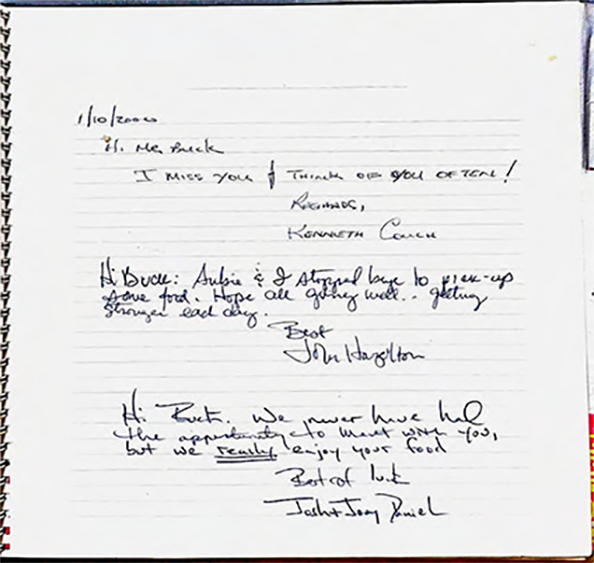 1/10/2000
Hi Mr. Buck
I MISS YOU & THINK OF YOU OFTEN!
REGARDS,
KENNETH COUCH
Hi Buck: & I stopped bye to pick-up
some food. Hope all going well.. getting
stronger each day.
Best
John Hazelton
Hi Buck. We never have had
the opportunity to meet with you,
but we really enjoy your food
Best of luck
Josh + Daniel